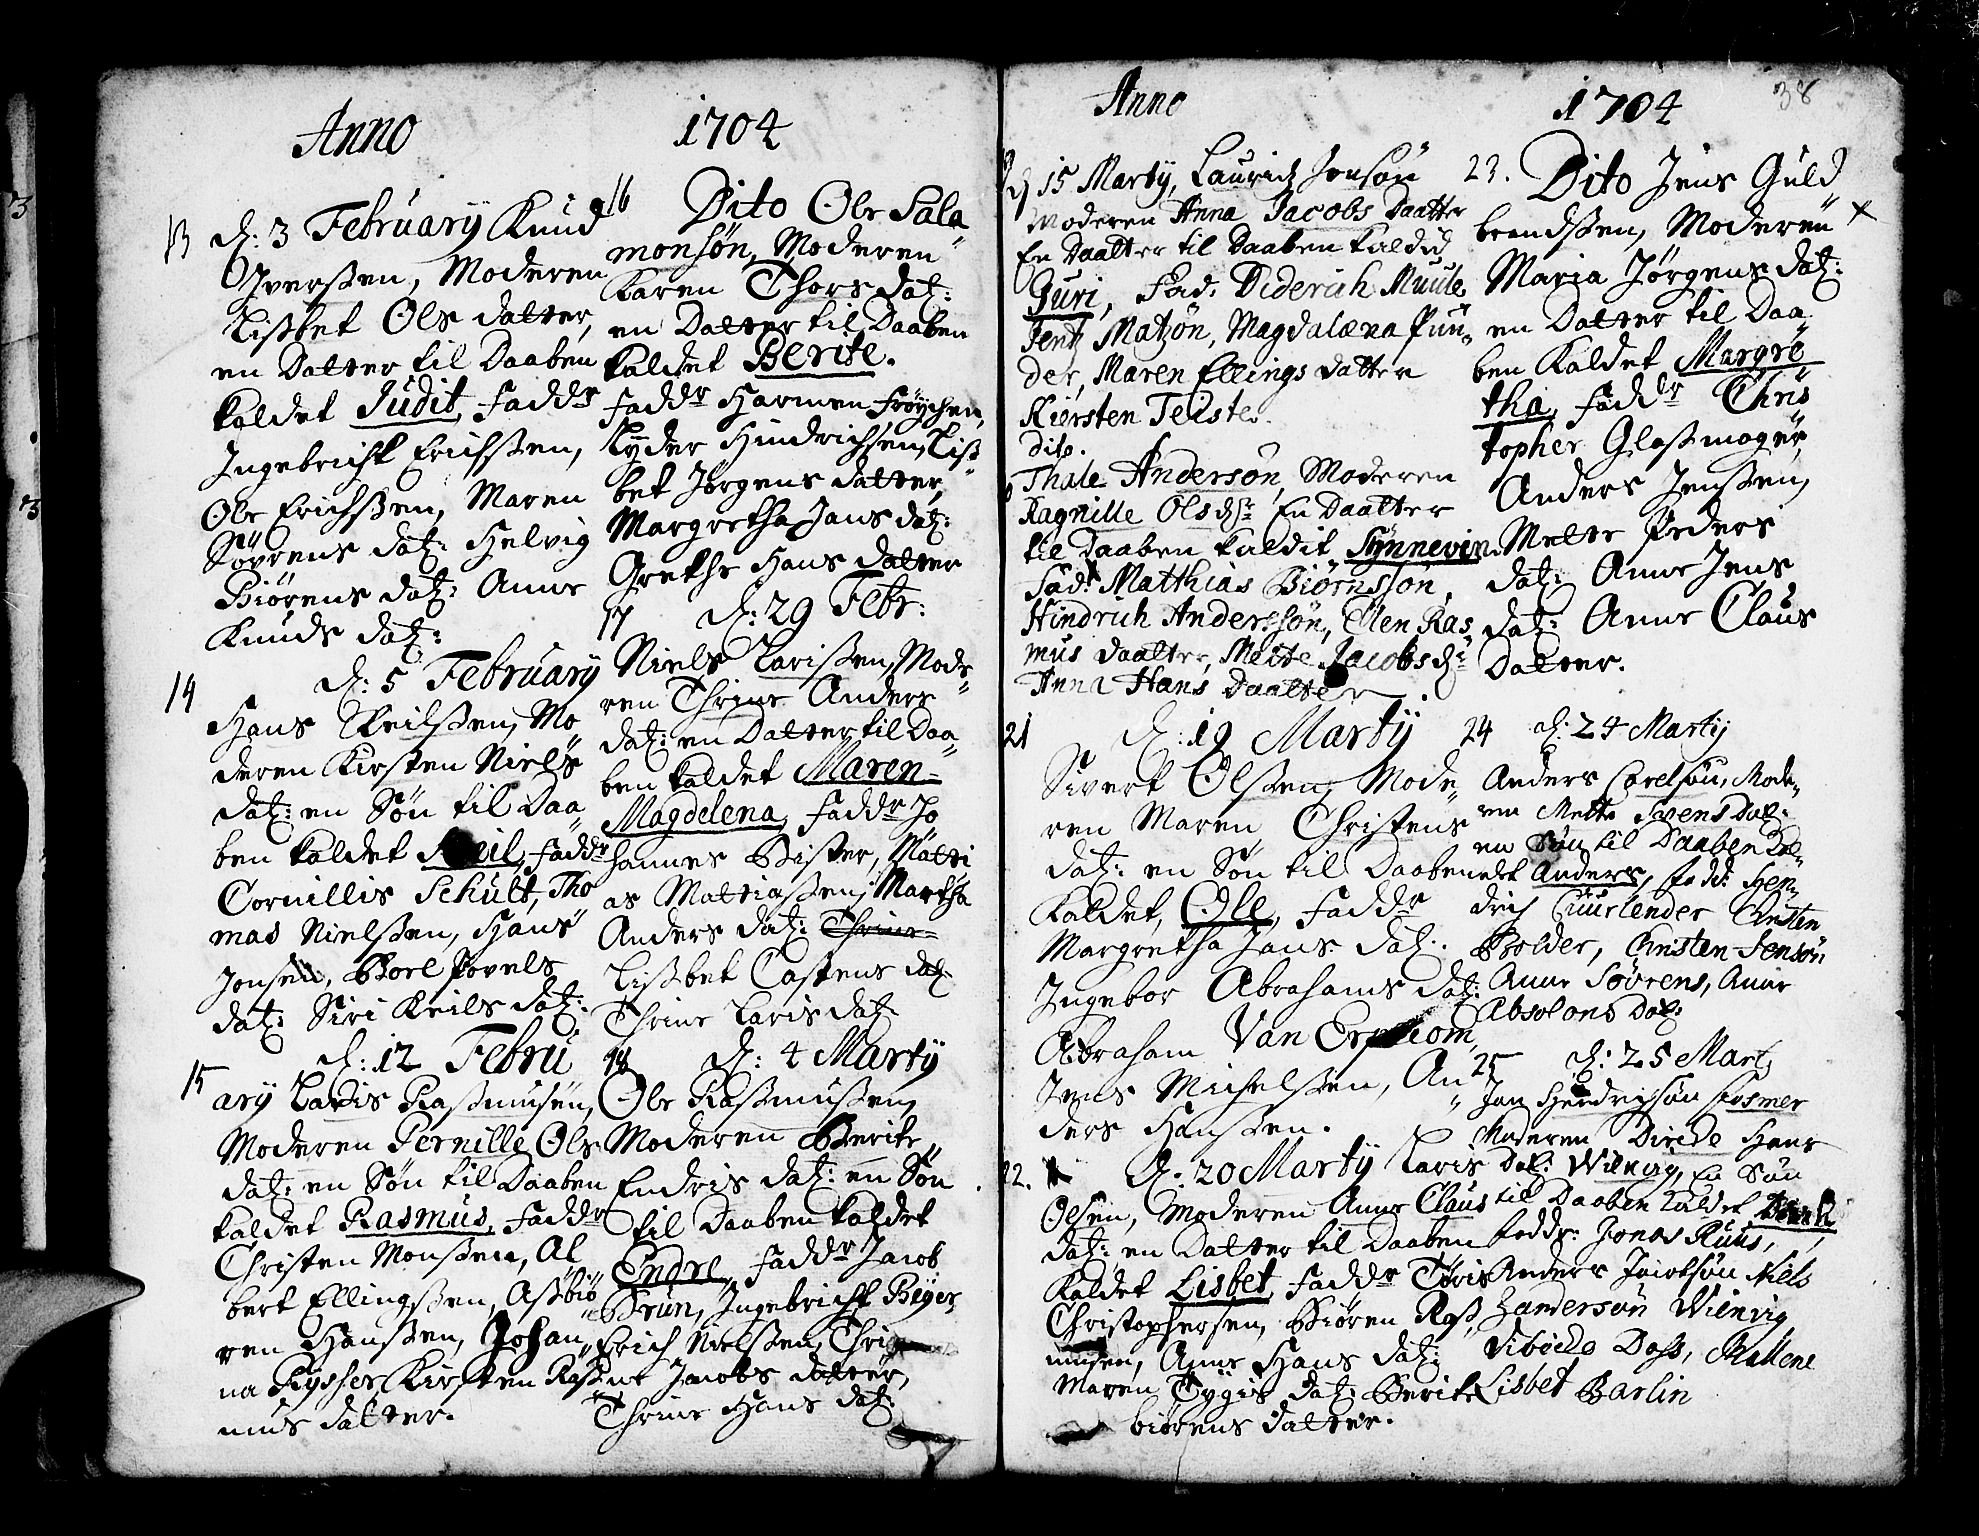 Anno 1704
13 d: 3 February Knud
Iverssen, Moderen
Lissbet Ols datter,
en Datter til Daaben
kaldet Judit, Faddr
Ingebricht Erichssen,
Ole Erichssen, Maren
Sørens datz: Helvig
Biørens datz: Anne
Knuds datz:
14 d: 5 February
Hans Neilssen, Mo
deren Kirsten Niels
datz: en Søn til Daa„
ben kaldet Faddr
Cornillis Schult, Tho
mas Nielssen, Hans
Jonsen, Borel Povels
datz: Siri Neils datz:
d: 12 Febru
15 ary Laris Rassmusen,
Moderen Pernille Ols
datz: en Søn til Daaben
kaldet Rasmus, Faddr
Christen Monssen, Al
bert Ellingssen, Assbiö„
ren Hanssen, Johan„
na Rysser, Kirsten Rass
mus datter.
16 Dito Ole Sala„
monsøn, Moderen
Karen Thors datz:
en Datter til Daaben
kaldet Berite.
Faddr Harmen Frøychen,
Lyder Hindrichsen, Liss„
bet Jørgens datter,
Margretha Jans datz:
Grethe Hans datter
17 d: 29 Febr:
Niels Larissen, Mode„
ren Thrine Anders
datz: en Datter til Daa„
ben kaldet Maren
Magdelena, Faddr Jo
hannes Bister, Matti
as Mattiassen, Martha
Anders datz: Thrine
Lissbet Castens datz
Thrine Laris datz
18 d: 4 Marty
Ole Rassmussen,
Moderen Berite
Endris datz: en Søn
til Daaben kaldet
Endre, Faddr Jacob
Brun, Ingebricht Beyer
Erich Nielssen, Thri
ne Jacobs datter,
Thrine Hans datz:
Anno 1704 38
d 15 Marty, Lauridz Jonsøn
Moderen Anna Jacobs Daatter
En Daatter til Daaben kaldid
Guri, Fad: Diderich Muule,
Jentz Matzøn, Magdalæna Puu„
der, Maren Ellings datter
Kiersten Teiste.
dito.
Thale Andersøn, Moderen
Ragnille Ols dr En Daatter
til Daaben kaldit Synneven
Fadr Matthias Biørnsson,
Hindrich Anderssøn, Ellen Ras„
mus daatter, Mette Jacobs dr
Anna Hans Daatter.
21 d: 19 Marty
Sivert Olssen, Mode„
ren Maren Christens
datz: en Søn til Daaben
kaldet, Ole, Faddr
Margretha Jans datz:
Ingebor Abrahams datz:
Abraham Van
Jens Michelssen, An„
ders Hanssen.
22. d: 20 Marty Laris
Olsen, Moderen Anne Claus
datz: en Datter til Daaben
kaldet Lisbet, Faddr Tøris
Christophersen, Biøren Rass„
musen, Anne Hans datz:
Maren Tygis datz: Berite
biørens datter.
23. Dito Jens Guld
brandssen, Moderen ×
Maria Jørgens datz:
en Datter til Daa
ben kaldet Margre
tha, Faddr Chris
topher Glassmager,
Anders Jenssen,
Mette Peders
datz: Anne Jens
datz: Anne Claus
Datter.
24 d: 24 Martij
Anders Carelsøn, Mode„
ren Mette Svens Datz:
en Søn til Daaben kal„
det Anders, fadd: Hen„
drich Cuurlender Christen
Bolder, Christen Jensøn
Anne Sørens, Anne
Absolons Datz:
25 d: 25 Mart,
Jan Hendrichsøn Cosmer
Moderen Diride Hans
Dat: Wilnvig, En Søn
til Daaben kaldet
faddr: Jonas Ruus,
Anders Jacobsøn Niels
Zandersøn Wilnvig
Viboide Doss, Mallene
Lisbet Barlin